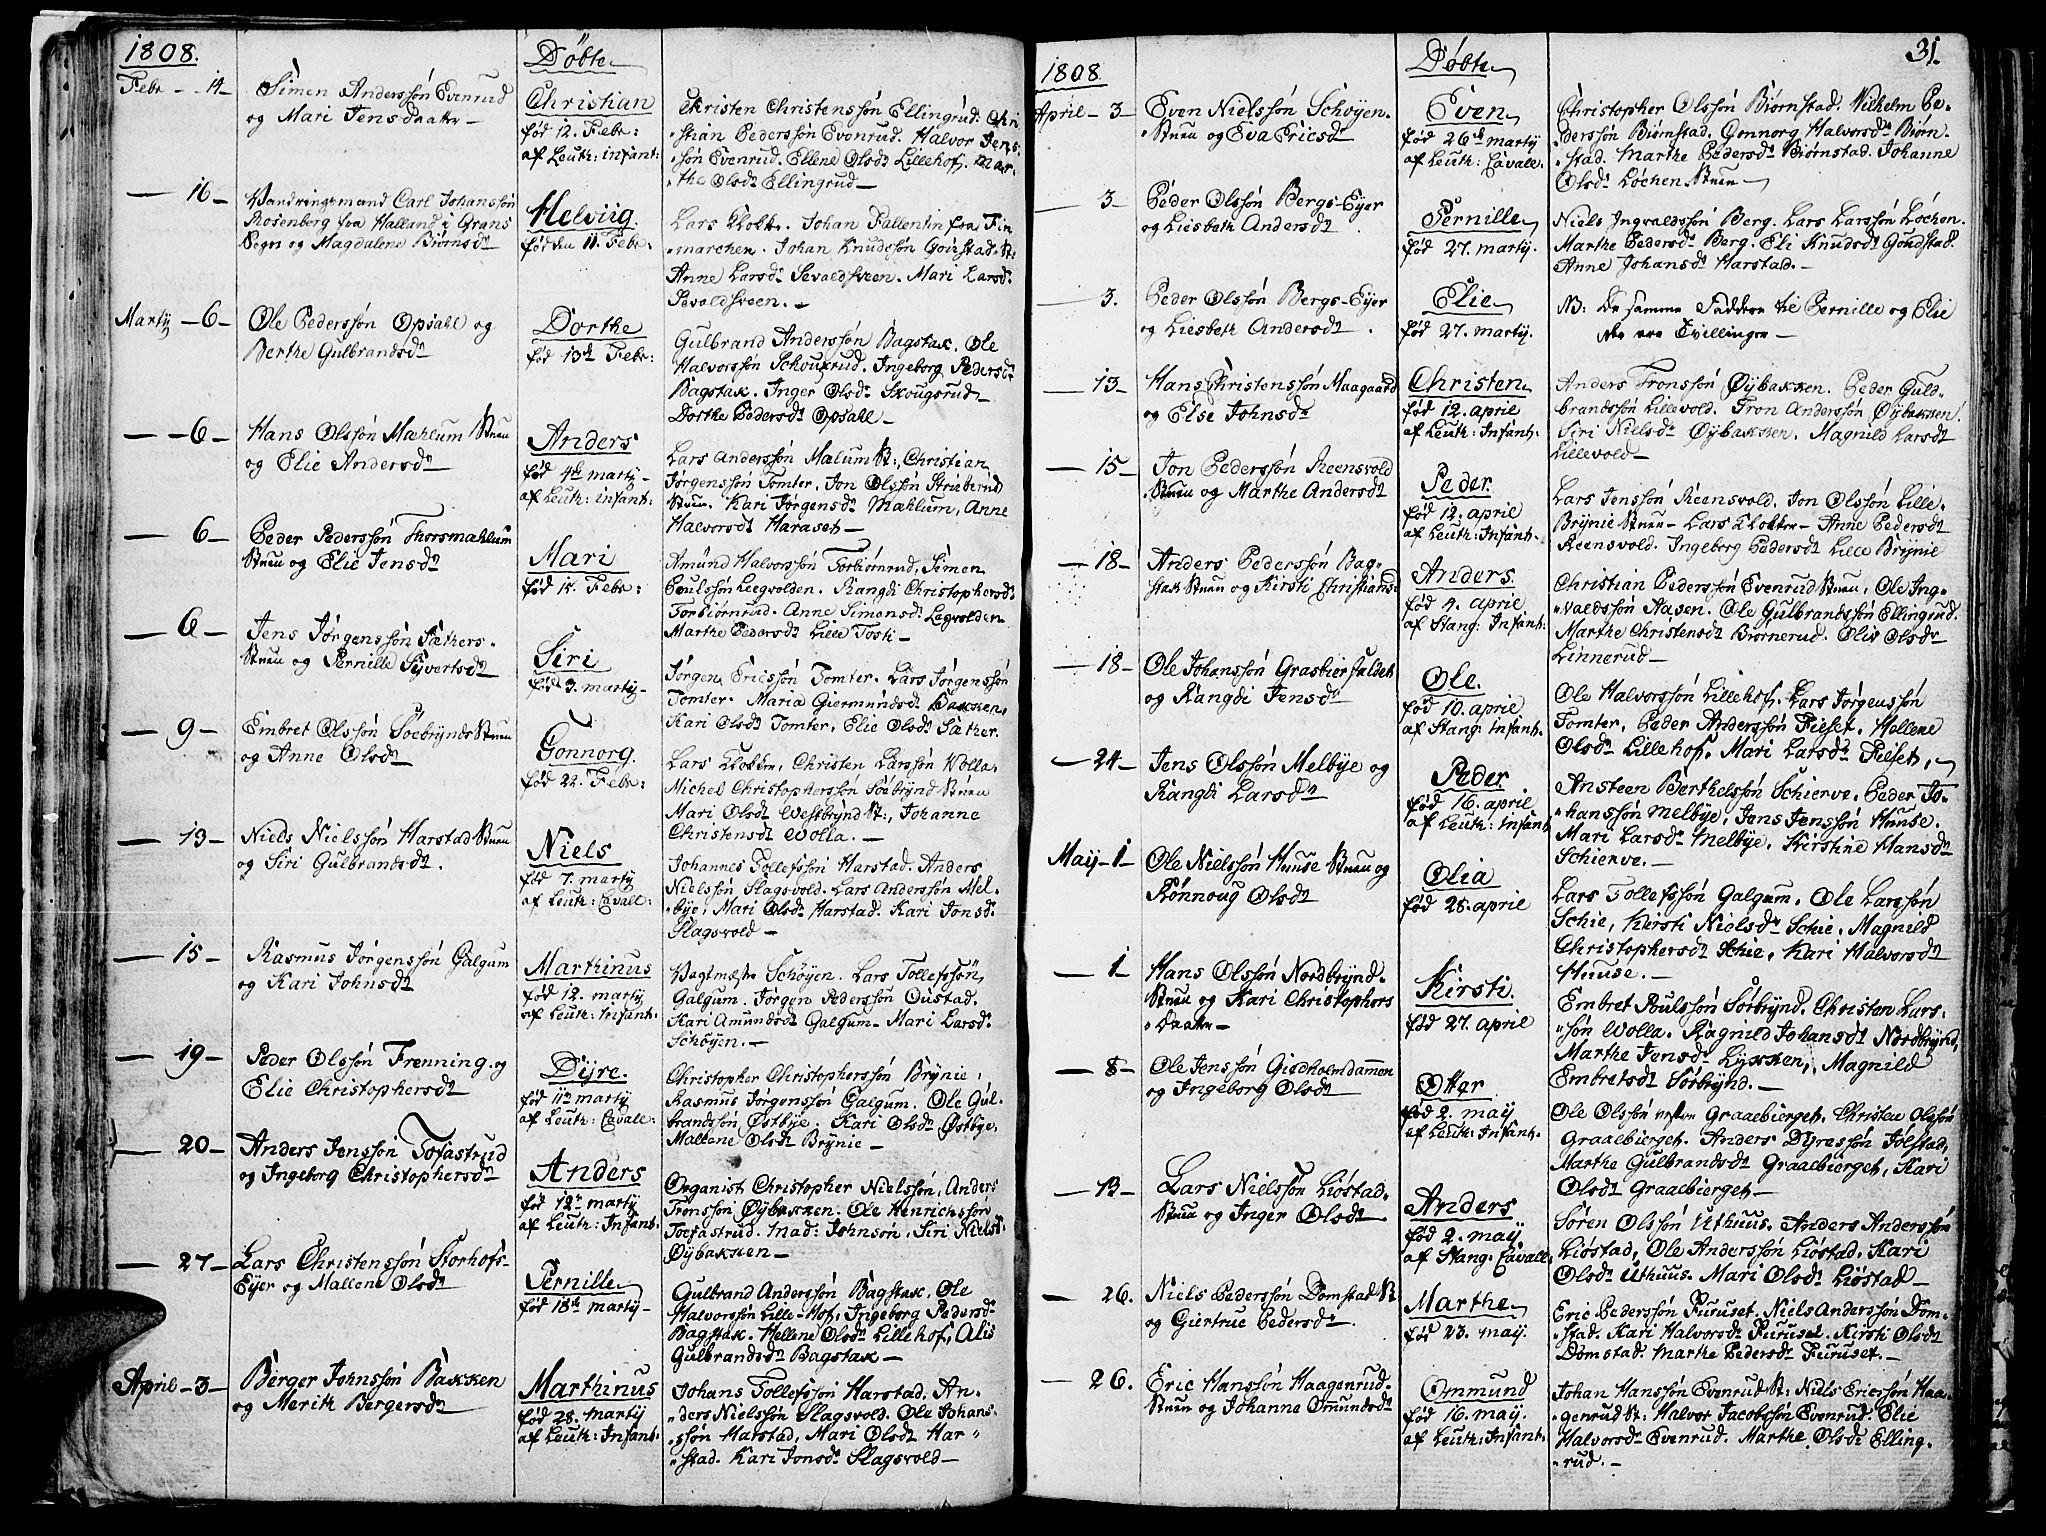 1808.
Døbte
Febr - 14 -
Simen Anderssón Evenrud
og Mari Jensdaatr -
Christian
fød 12. Febr:
af Leuth: infant:
Christen Christenssón Ellingrud. Chri
stian Pederssón Evenrud. Halvor Jens
són Evenrud. Ellene Olsdr Lillehof. Mar-
the Olsdr Ellingrud -
- 16 -
Vandringsmand Carl Johanssón
Rosenberg fra Halland i Grans
Sogn og Magdalene Biørnsdr
Helviig.
fød den 11. Febr:
Lars Klokk. Johan Fallentin fra Fin
marchen. Johan Knudssón Goústad St:
Anne Larsdr Sevaldsveen. Mari Larsdr
Sevaldsveen. -
Marty - 6 -
Ole Pederssón Opsahl og
Berthe Gulbrandsdr
Dorthe
fød 13de Febr:
Gulbrand Anderssón Bagstax. Ole
Halvorssón Schouxrud. Ingeborg Pedersdr
Bagstax. Inger Olsdr Skougsrud
Dorthe Pedersdr Opsahl -
- 6 -
Hans Olssón Mæhlum Stuen
og Elie Andersdr
Anders
fød 4de marty -
af Leuth: infant:
Lars Anderssón Mælum St:, Christian
Jørgenssón Tomter, Jon Olssón Strieberud
Stuen. Kari Jørgensdr Mæhlum, Anne
Halvorsdr Haraset -
- 6 -
Peder Pederssón Thorsmæhlum
Stuen og Elie Jensdr
Mari
fød 15. Febr:
Amund Halvorssón Torbiørnrud, Simen
Poulssón Leegvolden. Rangdi Christophersdr
Torbiørnrud. Anne Simensdr Legvolden
Marthe Pedersdr Lille Tosti -
- 6 -
Jens Jørgenssón Sæthers-
Stuen og Pernille Syvertsdr
Siri
fød 3. marty -
Jørgen Ericssón Tomter. Lars Jørgenssón
Tomter. Maria Giermundsdr Baxxen,
Kari Olsdr Tomter, Elie Olsdr Sæther.
- 9 -
Embret Olssón Søebrÿnds Stuen
og Anne Olsdr
Gonnorg.
fød 22. Febr:
Lars Klokker, Christen Larssón Wolla.
Michel Christopherssón Søebrÿnd Stuen
Mari Olsdr Westbrÿnd St:, Johanne
Christensdr Wolla. -
- 13 -
Niels Nielssón Harstad Stuen
og Siri Gulbrandsdr.
Niels
fød 7. marty
af Leuth: Cavall:
Johannes Tollefssón Harstad. Anders
Nielssón Slagsvold. Lars Anderssón Mel-
bye, Mari Olsdr Harstad. Kari Jonsdr
Slagsvold -
- 15 -
Rasmus Jørgenssón Galgum
og Kari Johnsdr
Marthinus
fød 12. marty
af Leuth: Infant:
Vagtmestr Schøyen. Lars Tollefssón
Galgum. Jørgen Pederssón Oustad.
Kari Amundsdr Galgum - Mari Larsdr
Schøyen. -
- 19 -
Peder Olssón Frenning. og
Elie Christophersdr
Dÿre.
fød 11te marty
af Leuth: Cavall:
Christopher Christopherssón Brÿnie,
Rasmus Jørgenssón Galgum. Ole Gúl-
brandssón Østbÿe. Kari Olsdr Østbÿe.
Mallene Olsdr Brÿnie -
- 20 -
Anders Jenssón Tofastrud
og Ingeborg Christophersdr
Anders
fød 12te marty
af Leuth: Infant:
Organist Christopher Nielssón, Anders
Tronssón Øÿbaxxen. Ole Henrichssón
Toefastrud. Mad: Johnsón, Siri Nielsdr
Øÿbaxxen -
- 27 -
Lars Christenssón Storhofs-
Eyer og Mallene Olsdr
Pernille
fød 18de marty -
Gulbrand Anderssón Bagstax, Ole
Halvorssón Lille-Hof, Ingeborg Pedersdr
Bagstax. Hellene Olsdr Lillehof, Alis
Gulbrandsdr Bagstax -
April - 3 -
Berger Johnssón Baxxen
og Merith Bergersdr
Marthinus
fød 28. marty
af Leuth: Infant:
Johans Tollefssón Harstad. An-
ders Nielssón Slagsvold. Ole Johans-
són Harstad, Mari Olsdr Har-
stad. Kari Jonsdr Slagsvold -
31.
1808.
Døbte
April - 3 -
Even Nielssón Schøyen-
Stuen og Eva Ericsdr
Even
fød 26de marty
af Leuth: Cavall:
Christopher Olssón Biørnstad. Wilhelm Pe-
derssón Biørnstad. Gonnorg Halvorsdr Biørn-
stad. Marthe Pedersdr Biørnstad. Johanne
Olsdr Løchen Stuen -
- 3 -
Peder Olssón Bergs-Eyer
og Liesbeth Andersdr
Pernille
fød 27. marty.
Niels Ingvaldssón Berg. Lars Larssón Løchen.
Marthe Pedersdr Berg. Eli Knudsdr Goudstad.
Anne Johansdr Harstad. -
- 3.
Peder Olssón Bergs-Eyer
og Liesbeth Andersdr.
Elie
fød 27. marty.
NB: De samme Faddere til Pernille og Elie
der ere Tvillinger -
- 13 -
Hans Christenssón Maagaard
og Else Johnsdr
Christen
fød 12. april
af Leuth: Infant:
Anders Tronssón Øÿbaxxen. Peder Guld-
brandssón Lillevold. Tron Anderssón Øÿbaxxen.
Siri Nielsdr Øÿbaxxen. Magnild Larsdr
Lillevold -
- 15 -
Jon Pederssón Reensvold
Stuen og Marthe Andersdr
Peder.
fød 12. april
af Leuth: Infant:
Lars Jenssón Reensvold. Jon Olssón Lille-
Brÿnie Stuen - Lars Klokker - Anne Pedersdr
Reensvold. Ingeborg Pedersdr Lille Brÿnie
- 18 -
Anders Pederssón Bag-
stax Stuen og Kirsti Christiansdr
Anders.
fød 4. april
af Stang: Infant:
Christian Pederssón Evenrud Stuen, Ole Ing-
valdssón Aasen. Ole Gulbrandssón Ellingrud.
Marthe Christensdr Biørnerud. Oliv Olsdr
Linnerud -
- 18 -
Ole Johanssón Grasbierfaldet
og Rangdi Jensdr
Ole.
fød 10. april
af Stang: Infant:
Ole Halvorssón Lillehof, Lars Jørgenssón
Tomter, Peder Anderssón Fieset. Hellene
Olsdr Lillehof. Mari Larsdr Fieset, -
- 24 -
Jens Olssón Melbÿe og
Rangdi Larsdr
Peder.
fød 16. april
af Leuth: Infant
Ansteen Berthelssón Schierve. Peder Jo-
hanssón Melbÿe, Jens Jenssón Huuse.
Mari Larsdr Melbÿe. Kirstine Hansdr
Schierve. -
May - 1 -
Ole Nielssón Huuse Stuen og
Rønnoug Olsdr
Olia
fød 25. april
Lars Tollefssón Galgum. Ole Larssón
Schie, Kirsti Nielsdr Schie. Magnild
Christophersdr Schie, Kari Halvorsdr
Huuse. -
- 1 -
Hans Olssón Nordbrÿnd-
Stuen og Kari Christophers
daatr -
Kirsti.
fød 27. april
Embret Poulssón Sørbrÿnd. Christen Lars-
són Wolla. Ragnild Johansdr Nordbrÿnd,
Marthe Jensdr Lÿxxen, Magnild
Embretsdr Sørbrÿnd. -
- 8 -
Ole Jenssón Gisholmdammen
og Ingeborg Olsdr
Otter
fød 2. may
af Leuth: Infant:
Ole Olssón Graaebierget, Christen Olssón
Graaebierget. Anders Dÿressón Jølstad,
Marthe Gulbrandsdr Graaebierget, Kari
Olsdr Graaebierget -
- 13 -
Lars Nielssón Liøstad-
Stuen og Inger Olsdr
Anders
fød 2. may
af Stang: Cavall:
Søren Olssón Uthuus. Anders Anderssón
Liøstad, Ole Anderssón Liøstad. Kari
Olsdr Uthuus. Mari Olsdr Liøstad -
- 26.
Niels Pederssón Domstad St
og Giertrue Pedersdr.
Marthe
fød 23. may.
Eric Pederssón Furuset. Niels Anderssón Dom-
stad. Kari Halvorsdr Furuset. Kirsti Olsdr
Domstad. Marthe Pedersdr Furuset. -
- 26.
Eric Hanssón Haagenrud-
Stuen og Johanne Omundsdr
Ommund
fød 16. may.
af Leuth: Infant:
Johan Hanssón Evenrud St: Niels Ericssón Haa-
genrud St: Halvor Jacobssón Evenrud. Elie
Halvorsdr Evenrud. Marthe Olsdr Elling-
rud. -